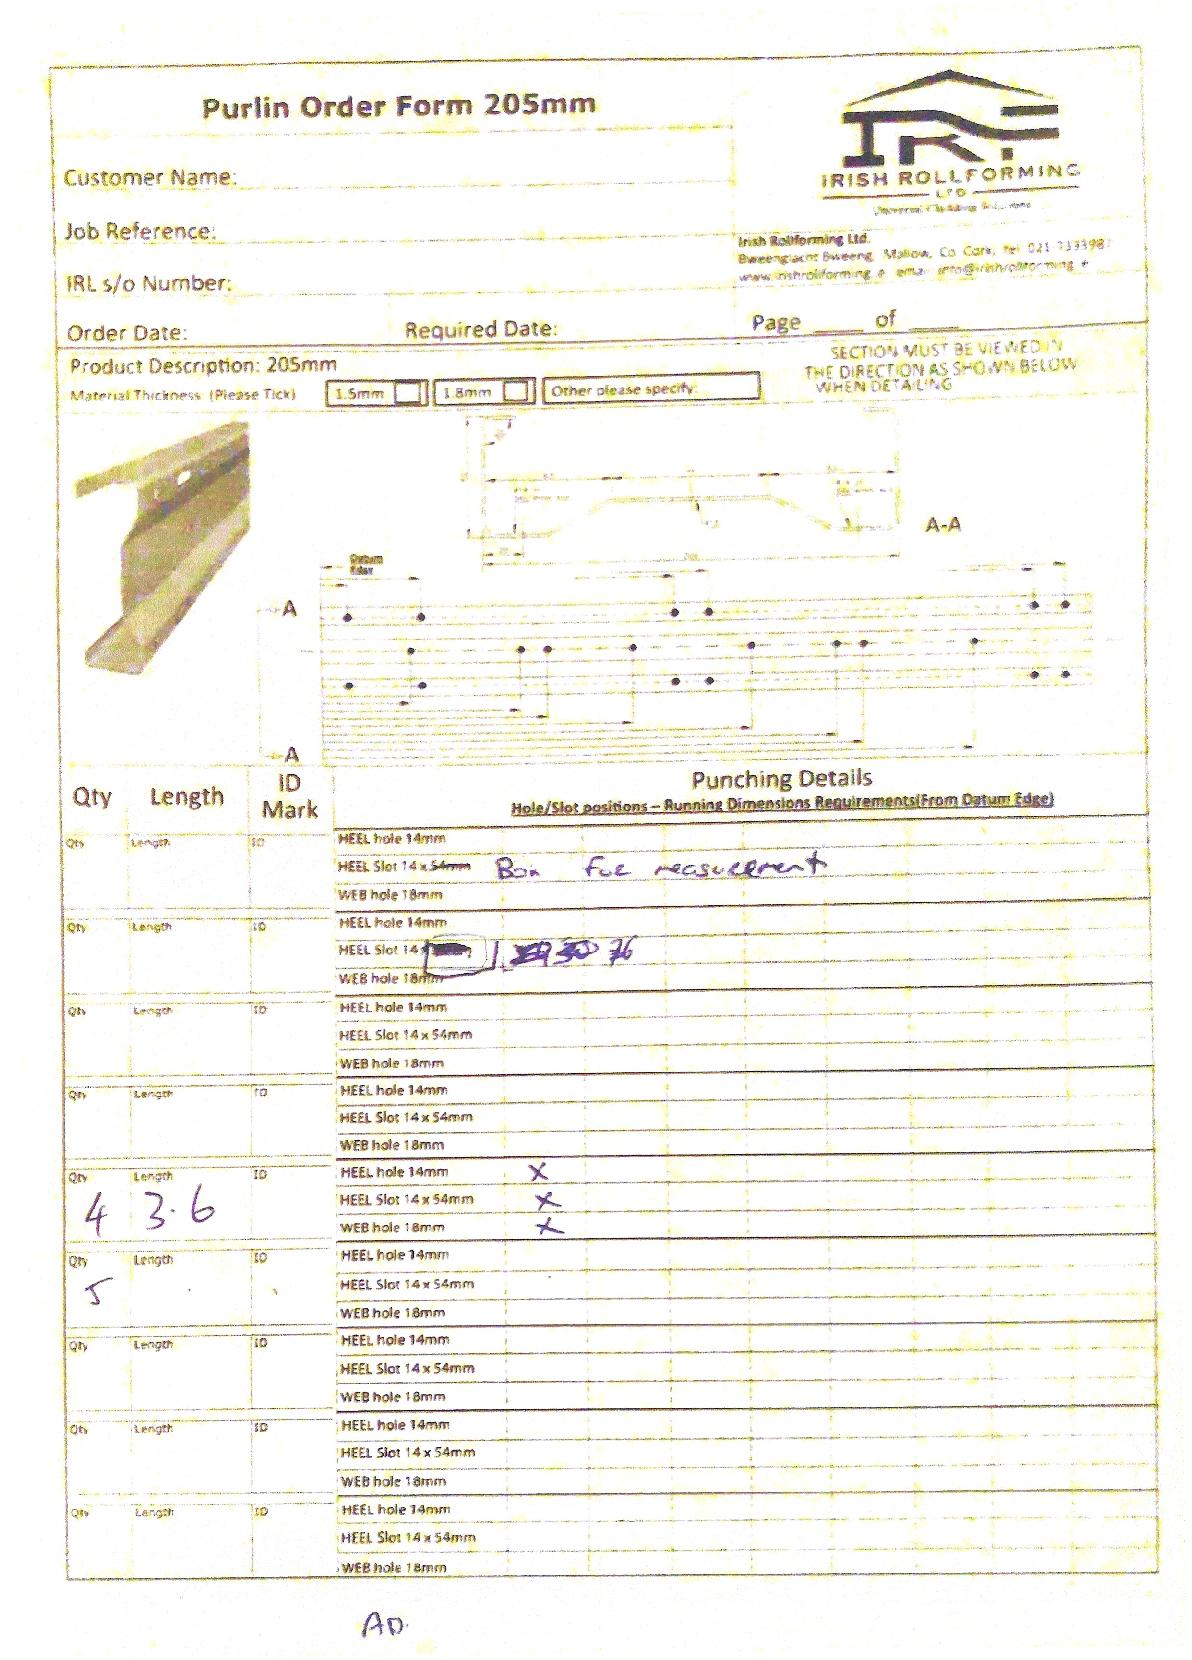 Purlin Order Form 205mm
IRF
IRISH ROLLFORMING
LTD
Customer Name:
Job Reference:
IRL s/o Number:
Irish Rollforming Ltd.
Bweengtacht Bweeng, Mallow, Co Cork, Tel 021-7333987
www.irishrollforming.ie email info@irishrollforming.ie
Order Date: Required Date: Page ____ of ____
Product Description: 205mm
Material Thickness (Please Tick) 1.5mm 1.8mm Other please specify:
SECTION MUST BE VIEWED IN
THE DIRECTION AS SHOWN BELOW
WHEN DETAILING
A-A
Datum
Edge
A
A
Qty Length ID Mark Punching Details
Hole/Slot positions – Running Dimensions Requirements(From Datum Edge)
Qty Length ID HEEL hole 14mm
HEEL Slot 14 x 54mm Box for measurement
WEB hole 18mm
Qty Length ID HEEL hole 14mm
HEEL Slot 14 76
WEB hole 18mm
Qty Length ID HEEL hole 14mm
HEEL Slot 14 x 54mm
WEB hole 18mm
Qty Length ID HEEL hole 14mm
HEEL Slot 14 x 54mm
WEB hole 18mm
Qty Length ID HEEL hole 14mm X
4 3.6 HEEL Slot 14 x 54mm X
WEB hole 18mm X
Qty Length ID HEEL hole 14mm
5 HEEL Slot 14 x 54mm
WEB hole 18mm
Qty Length ID HEEL hole 14mm
HEEL Slot 14 x 54mm
WEB hole 18mm
Qty Length ID HEEL hole 14mm
HEEL Slot 14 x 54mm
WEB hole 18mm
Qty Length ID HEEL hole 14mm
HEEL Slot 14 x 54mm
WEB hole 18mm
AD.